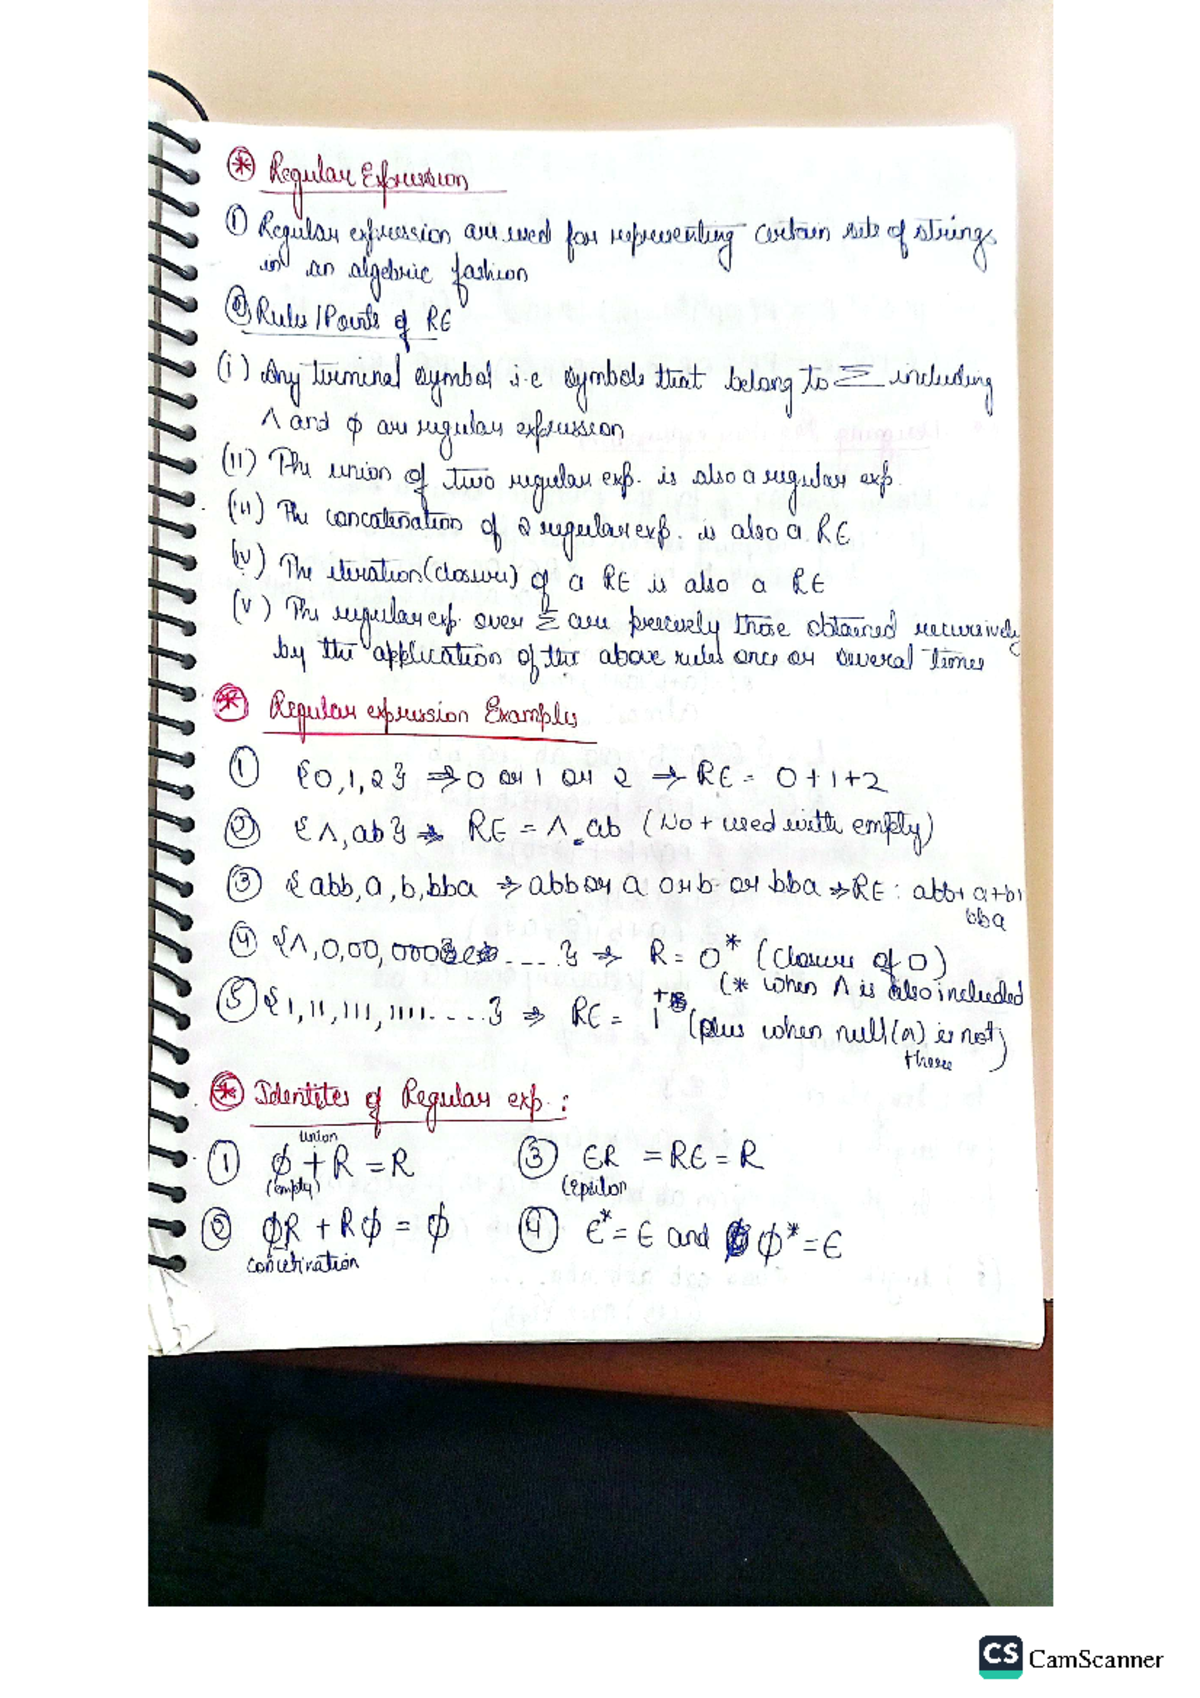 * Regular Expression
① Regular expression are used for representing certain sets of strings
in an algebric fashion
② Rules/Points of RE
(i) Any terminal symbol i.e symbols that belong to Σ including
Λ and ϕ are regular expression
(ii) The union of two regular exp. is also a regular exp.
(iii) The concatenation of 2 regular exp. is also a RE
(iv) The iteration(closure) of a RE is also a RE
(v) The regular exp. over Σ are precisely those obtained recursively
by the application of the above rules once or several times
* Regular expression Examples
① {0,1,2} ⇒ 0 or 1 or 2 ⇒ RE = 0+1+2
② {Λ,ab} ⇒ RE = Λ.ab (No + used with empty)
③ {abb,a,b,bba ⇒ abb or a or b or bba ⇒ RE: abb+a+b+
bba
④ {Λ,0,00,000.....} ⇒ R = 0* (closure of 0)
(* when Λ is also included
⑤ {1,11,111,1111.....} ⇒ RE = 1+ (plus when null(Λ) is not)
there
* Identites of Regular exp.:
union
① ϕ+R = R ③ ЄR = RЄ = R
(empty) (epsilon
② ϕR + Rϕ = ϕ ④ Є* = Є and ϕ* = Є
CS CamScanner